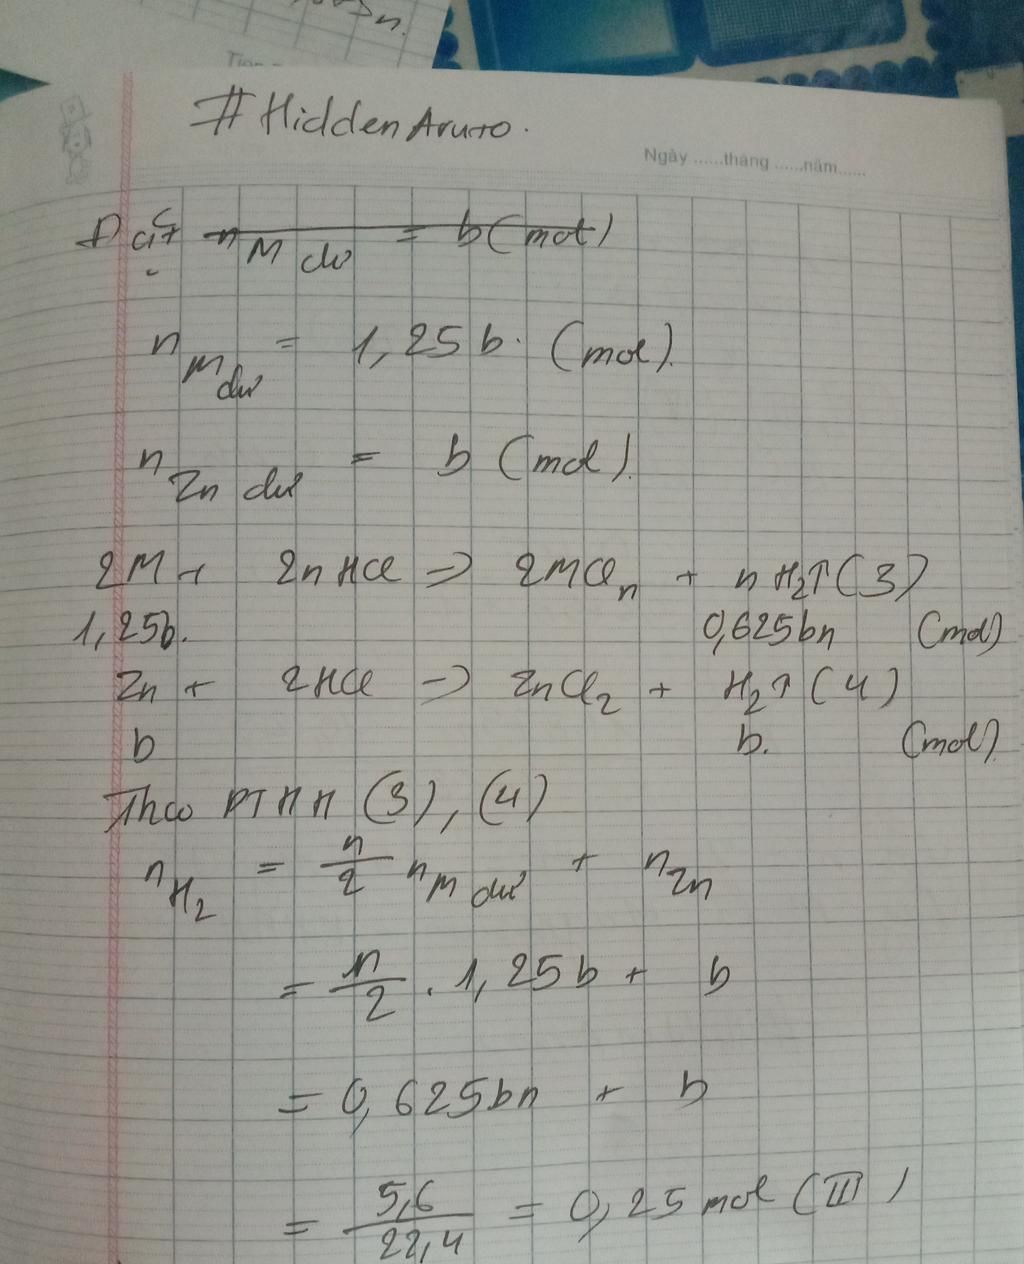 n.
# HiddenAruto.
Ngày ......tháng ......năm......
Đặt n M dư = b (mol)
n M dư = 1,25b. (mol).
n Zn dư = b (mol).
2M + 2nHCl → 2MCln + nH2↑ (3)
1,25b. 0,625bn (mol)
Zn + 2HCl → ZnCl2 + H2↑ (4)
b b. (mol)
Theo PTHH (3), (4)
nH2 = n/2 n M dư + nZn
= n/2 . 1,25b + b
= 0,625bn + b
= 5,6/22,4 = 0,25 mol (II)